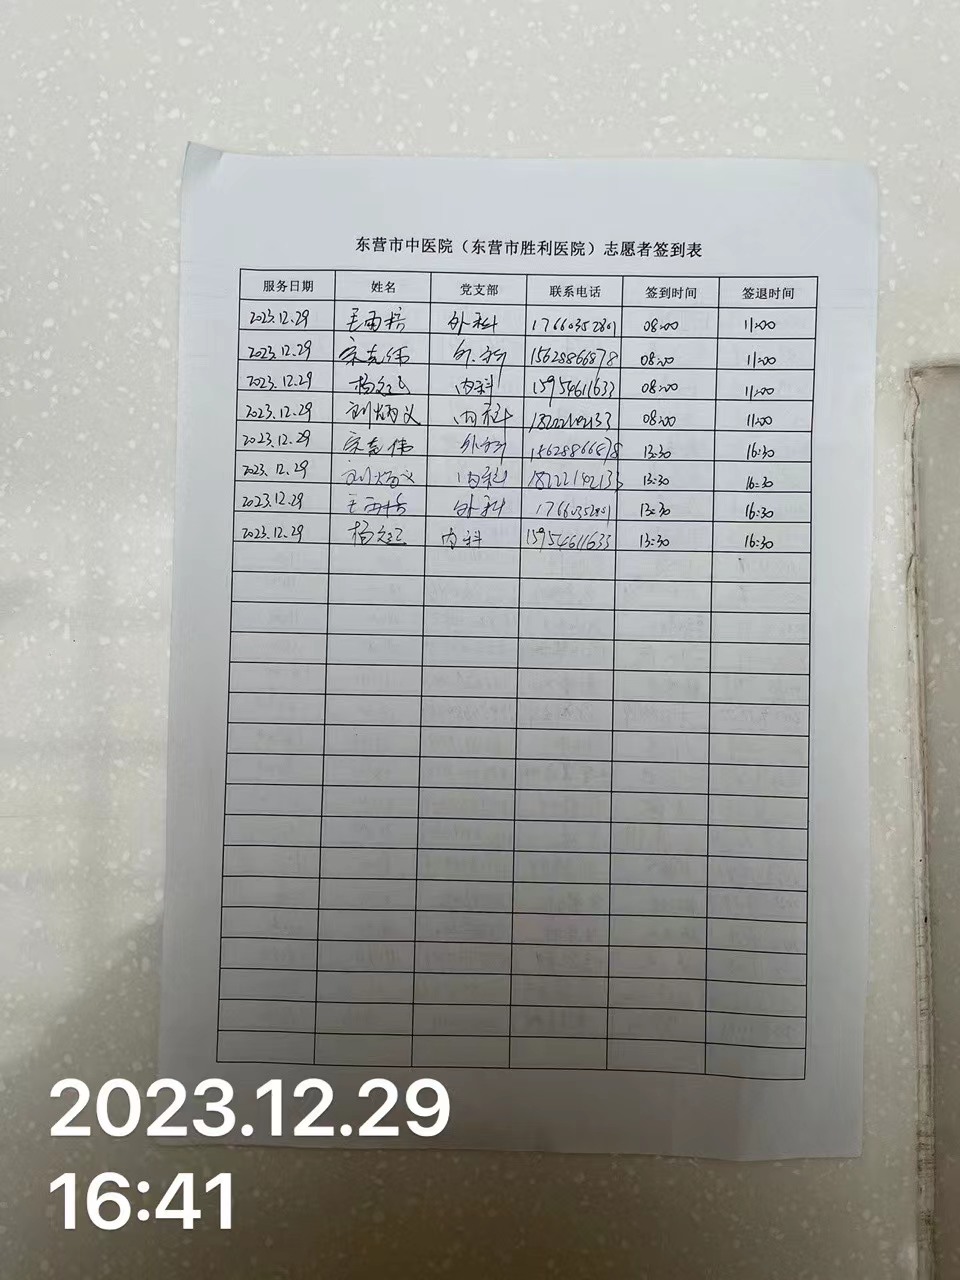 东营市中医院（东营市胜利医院）志愿者签到表
服务日期 姓名 党支部 联系电话 签到时间 签退时间
2023.12.29 王雨梧 外科 17660352801 08:00 11:00
2023.12.29 宗克伟 外科 15628866878 08:00 11:00
2023.12.29 杨 内科 15954611633 08:00 11:00
2023.12.29 刘炳义 内科 18222142133 08:00 11:00
2023.12.29 宗克伟 外科 15628866878 13:30 16:30
2023.12.29 刘炳义 内科 18222142133 13:30 16:30
2023.12.29 王雨梧 外科 17660352801 13:30 16:30
2023.12.29 杨 内科 15954611633 13:30 16:30
2023.12.29
16:41